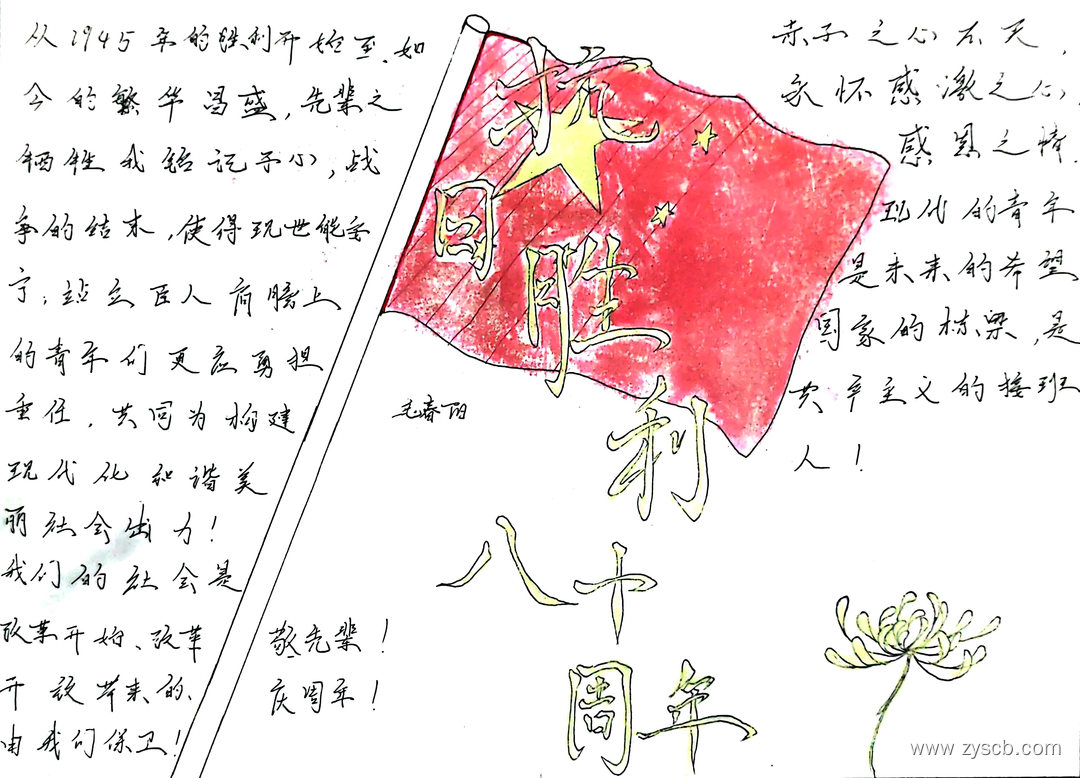 从1945年的胜利开始至.如
今的繁华昌盛,先辈之
牺牲我铭记于心,战
争的结束,使得现世能安
宁;站立巨人肩膀上
的青年们更应勇担
重任,共同为构建
现代化和谐美
丽社会出力!
我们的社会是
改革开始、改革
开放带来的、
由我们保卫!
敬先辈!
庆周年!
抗
日
胜
利
八十
周年
毛春阳
赤子之心在天,
永怀感激之心,
感恩之情.
现代的青年
是未来的希望
国家的栋梁,是
共产主义的接班
人!
www.zyscb.com